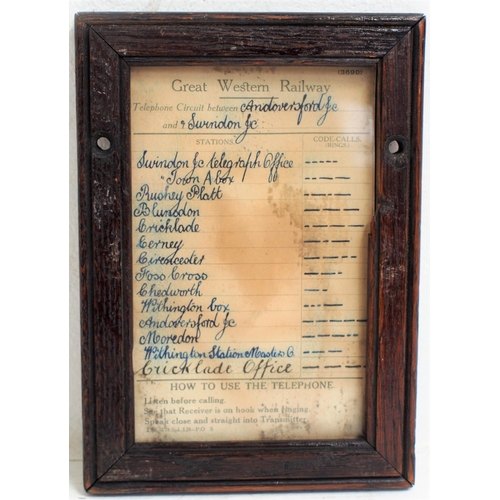 (3590)
Great Western Railway
Telephone Circuit between Andoversford Jc
and Swindon Jc
STATIONS CODE-CALLS (RINGS)
Swindon Jc telegraph Office
" Town A box
Rushey Platt
Blunsdon
Cricklade
Cerney
Cirencester
Foss Cross
Chedworth
Withington box
Andoversford Jc
Moredon
Withington Station Masters O.
Cricklade Office
HOW TO USE THE TELEPHONE
Listen before calling.
See that Receiver is on hook when ringing.
Speak close and straight into Transmitter.